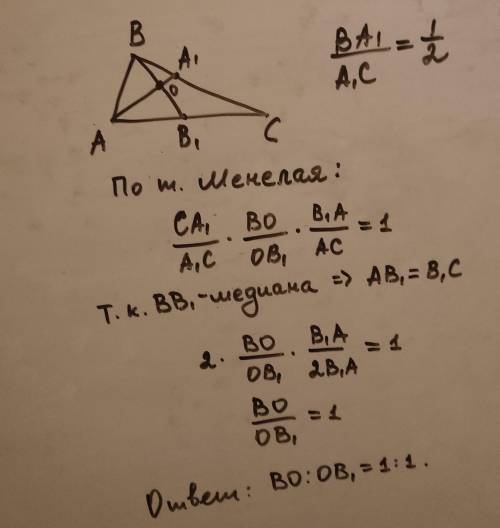 B
A₁
O
A
B₁
C
BA₁/A₁C = 1/2
По т. Менелая:
CA₁/A₁C · BO/OB₁ · B₁A/AC = 1
Т.к. BB₁-медиана => AB₁=B₁C
2 · BO/OB₁ · B₁A/2B₁A = 1
BO/OB₁ = 1
Ответ: BO:OB₁=1:1.